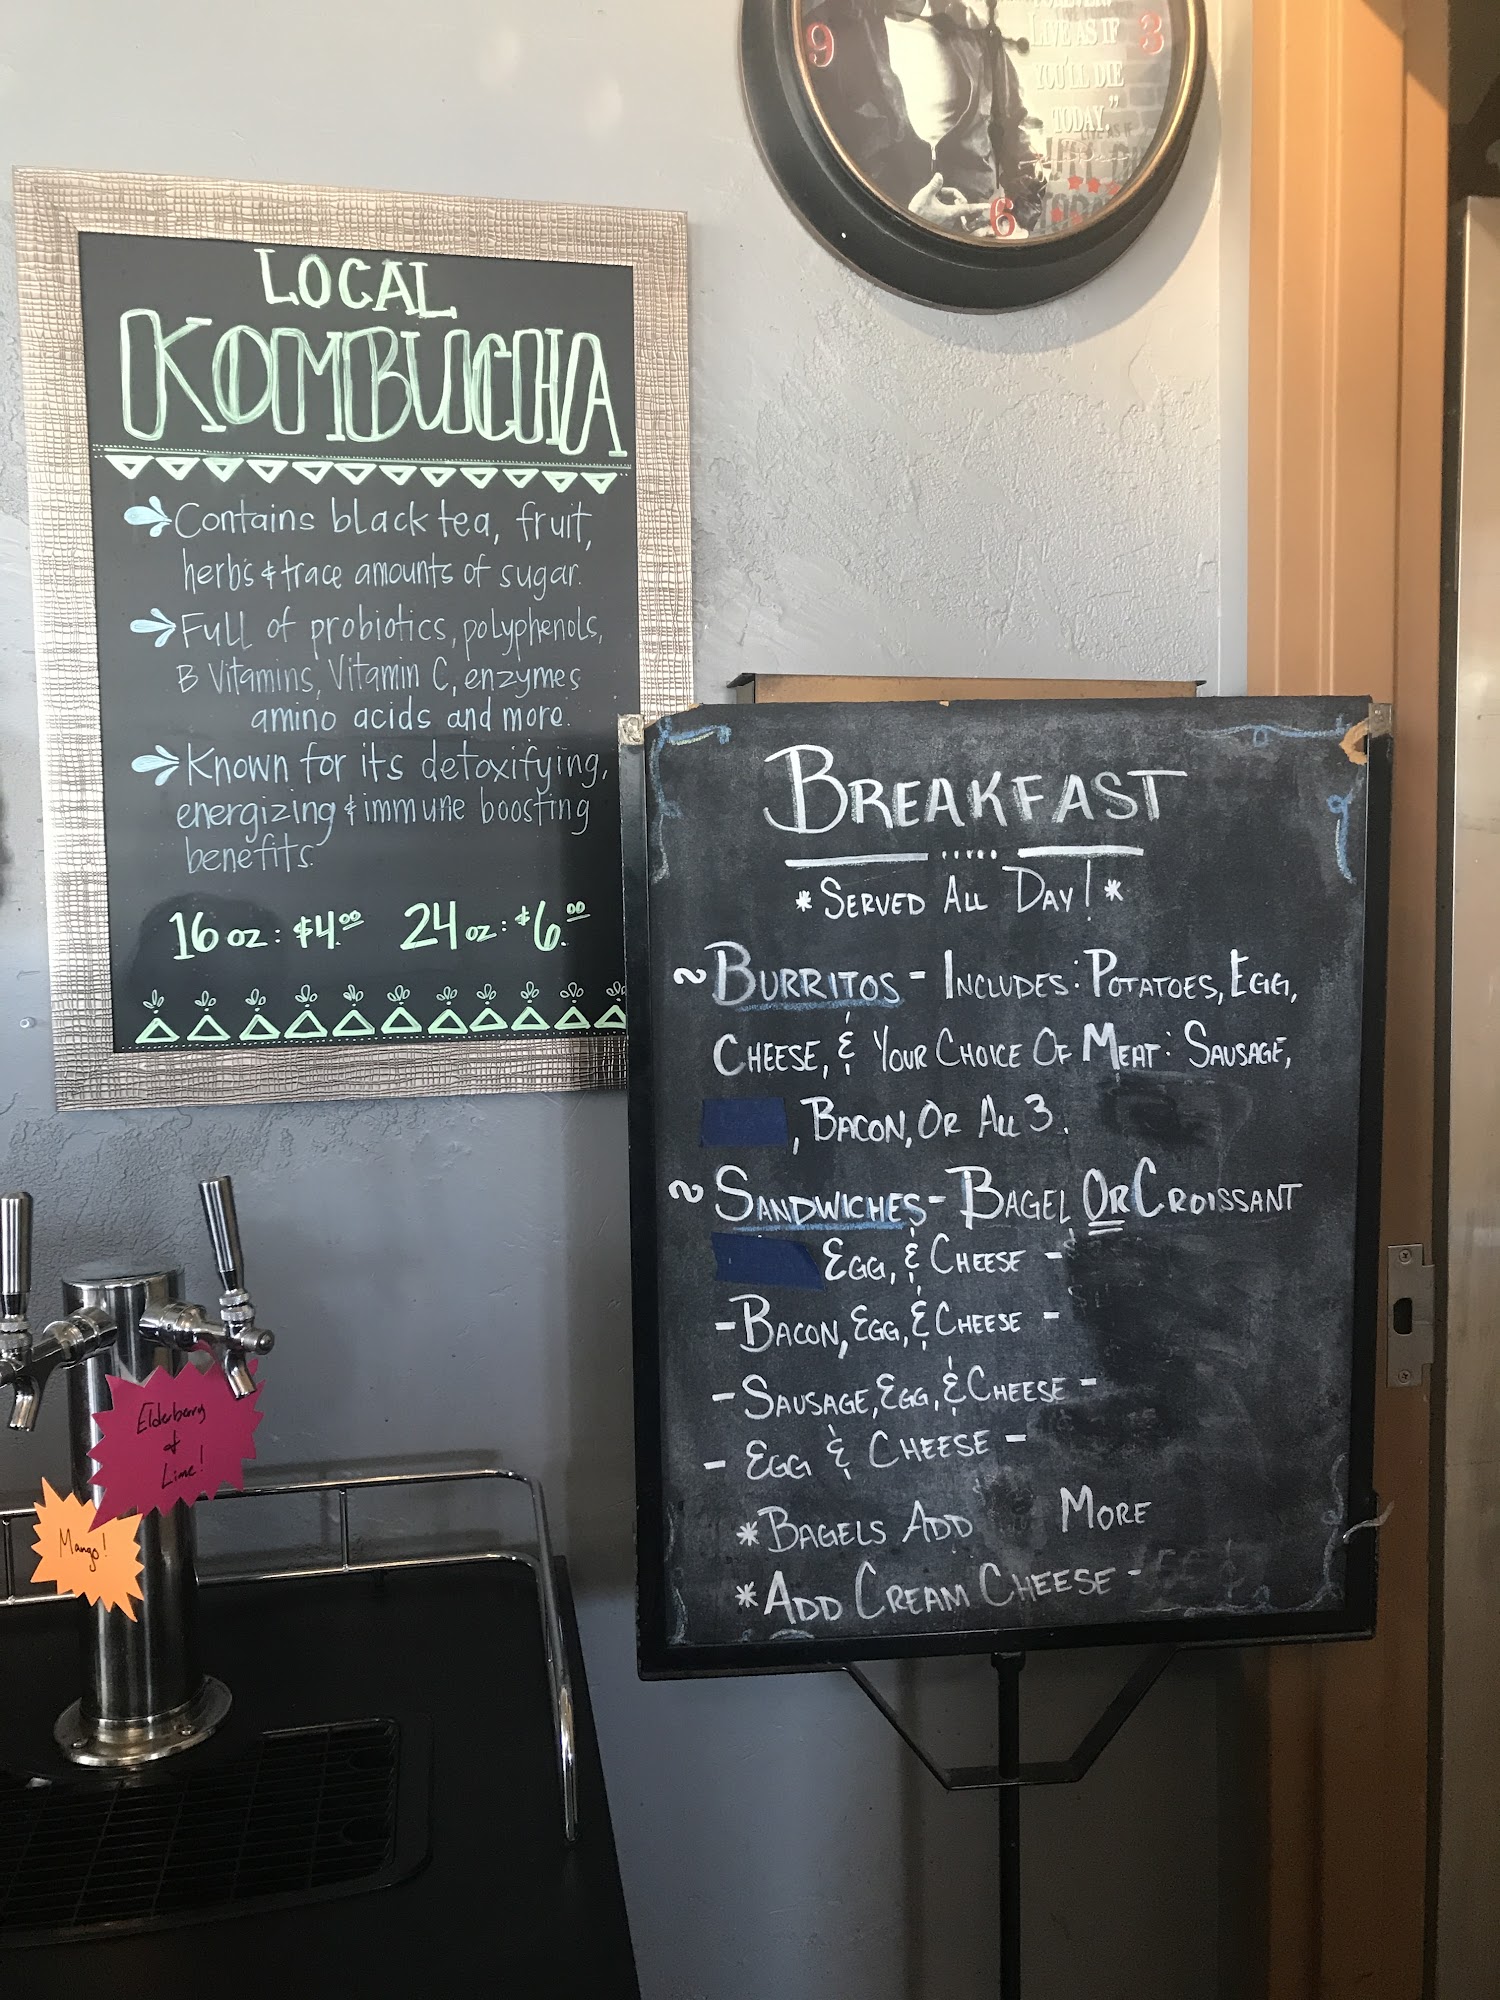 9
3
6
LIVE AS IF
YOU'LL DIE
TODAY."
LOCAL
KOMBUCHA
Contains black tea, fruit,
herbs & trace amounts of sugar.
Full of probiotics, polyphenols,
B Vitamins, Vitamin C, enzymes
amino acids and more.
Known for its detoxifying,
energizing & immune boosting
benefits.
16 oz: $4.00 24 oz: $6.00
BREAKFAST
*SERVED ALL DAY!*
~BURRITOS - INCLUDES: POTATOES, EGG,
CHEESE, & YOUR CHOICE OF MEAT: SAUSAGE,
, BACON, OR ALL 3.
~SANDWICHES - BAGEL OR CROISSANT
EGG, & CHEESE -
-BACON, EGG, & CHEESE -
-SAUSAGE, EGG, & CHEESE -
- EGG & CHEESE -
*BAGELS ADD MORE
*ADD CREAM CHEESE -
Elderberry
&
Lime!
Mango!